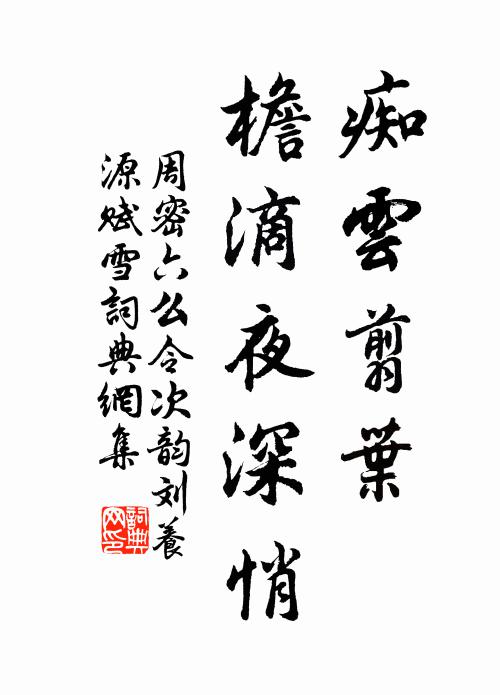 痴雲翦葉
檐滴夜深悄
周密六么令次韵刘養
源赋雪詞典網集
詞典網印